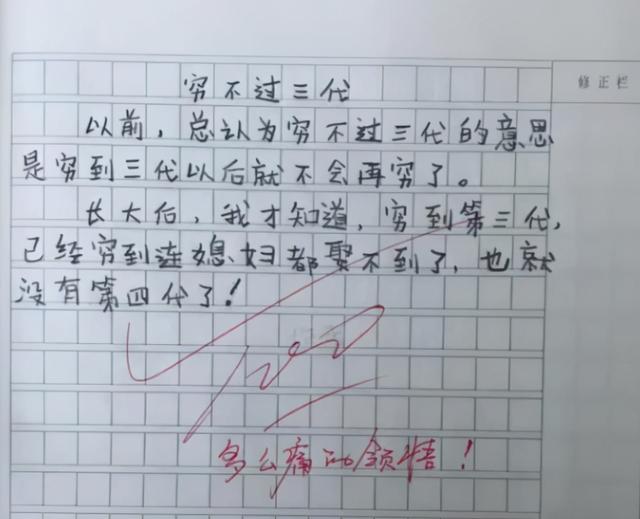 修正栏
穷不过三代
以前，总认为穷不过三代的意思
是穷到三代以后就不会再穷了。
长大后，我才知道，穷到第三代，
已经穷到连媳妇都娶不到了，也就
没有第四代了！
100
多么痛的领悟！